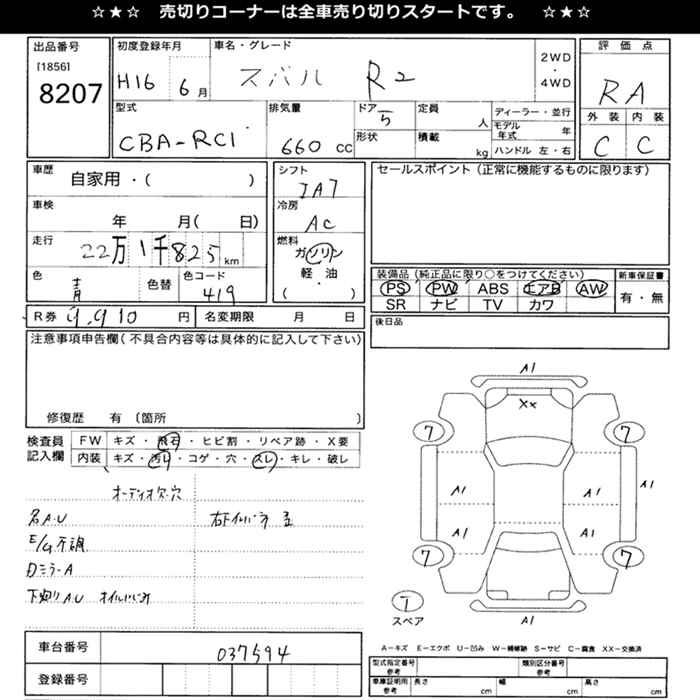 ☆★☆　売切りコーナーは全車売り切りスタートです。　☆★☆
出品番号
[1856]
8207
初度登録年月
H16 6月
車名・グレード
スバル R2
2WD
・
4WD
評価点
RA
外装 内装
C C
型式
CBA-RC1
排気量
660 CC
ドア
5
形状
定員
人
積載
kg
ディーラー・並行
モデル年式 年
ハンドル 左・右
車歴
自家用・( )
車検
年 月( 日)
走行
22万1千825km
色
青
色替
色コード
419
シフト
IA7
冷房
AC
燃料
ガソリン
軽・油
・
( )
セールスポイント（正常に機能するものに限ります）
装備品（純正品に限り○をつけてください）
PS PW ABS エアB AW
SR ナビ TV カワ
新車保証書
有・無
後日品
R券 9,910 円
名変期限 月 日
注意事項申告欄（不具合内容等は具体的に記入して下さい）
修復歴 有（箇所 ）
検査員
記入欄
FW キズ・飛石・ヒビ割・リペア跡・X要
内装 キズ・汚れ・コゲ・穴・スレ・キレ・破レ
オーディオ欠・穴
名A.U
E/G不調
Dミラ-A
A1
XX
7
7
A1
A1
A1
A1
A1
7
7
A1
T
スペア
A-キズ E-エクボ U-凹み W-補修跡 S-サビ C-腐食 XX-交換済
車台番号
037594
登録番号
型式指定番号
参考
類別区分番号
参考
車庫証明用
参考
長さ cm
幅 cm
高さ cm